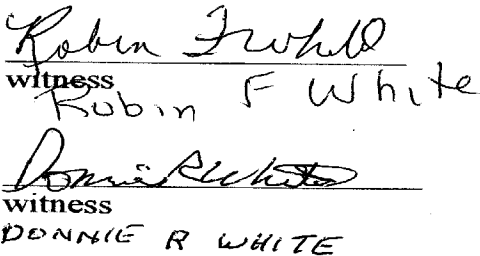 Robin F White
witness
Robin F White
Donnie R White
witness
DONNIE R WHITE